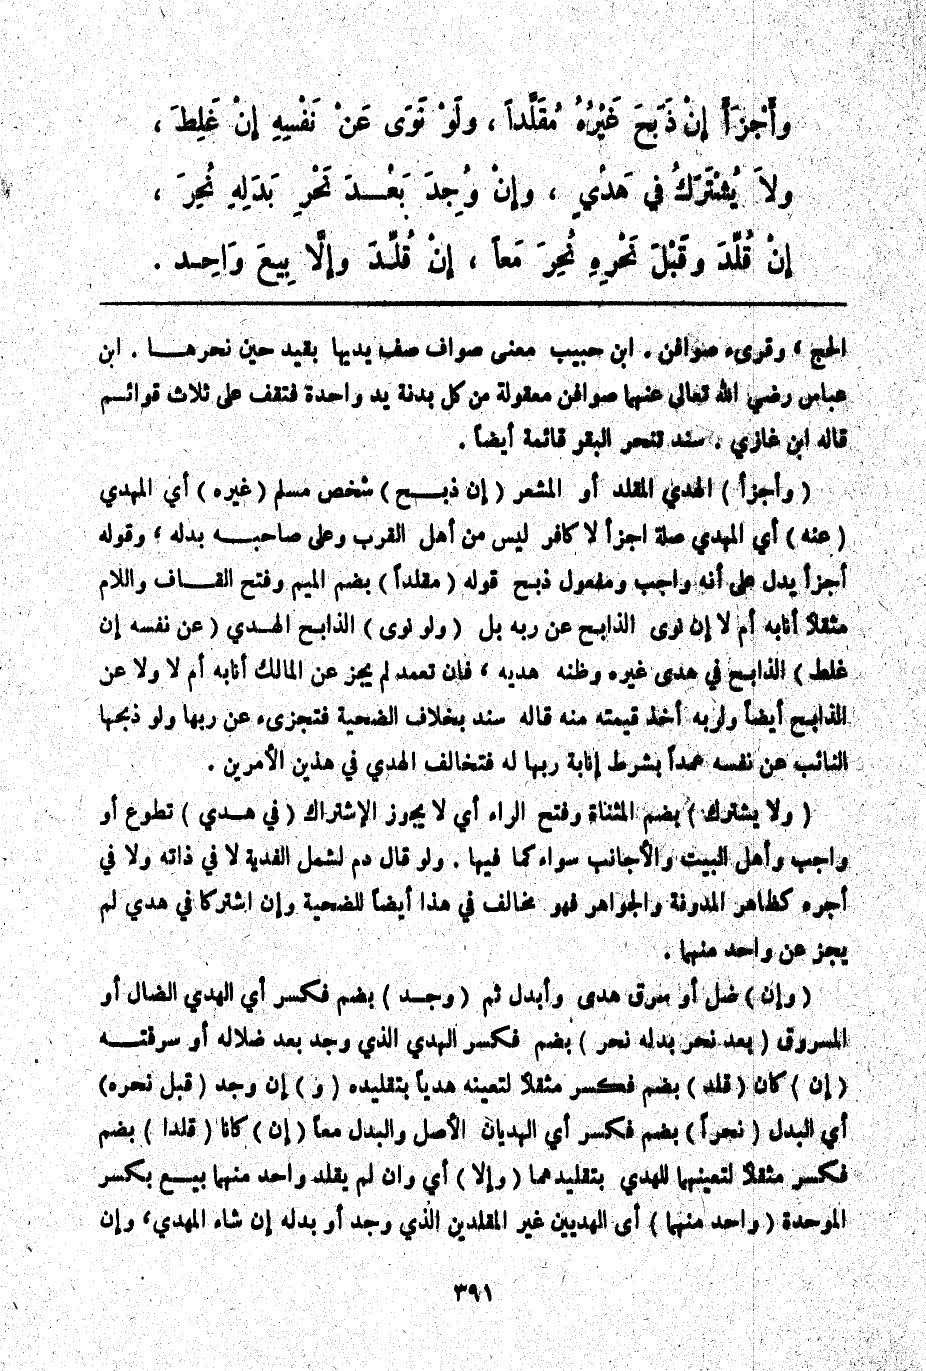 وأَجْزَأَ إِنْ ذَبَحَ غَيْرُهُ مُقَلَّداً ، ولَوْ نَوَى عَنْ نَفْسِهِ إِنْ غَلِطَ ،
ولاَ يُشْتَرَكُ في هَدْيٍ ، وإِنْ وُجِدَ بَعْـدَ نَحْرِ بَدَلِهِ نُحِرَ ،
إِنْ قُلِّدَ وقَبْلَ نَحْرِهِ نُحِرَ مَعاً ، إِنْ قُلِّـدَ وإلَّا بِيعَ وَاحِـد .
الحج ، وقرىء صوافن . ابن حبيب معنى صواف صف يديها بقيد حين نحرهـا . ابن
عباس رضي الله تعالى عنهما صوافن معقولة من كل بدنة يد واحدة فتقف على ثلاث قوائـم
قاله ابن غازي . سند تنحر البقر قائمة أيضاً .
( وأجزأ ) الهدي المقلد أو المشعر ( إن ذبـح ) شخص مسلم ( غيره ) أي المهدي
( عنه ) أي المهدي صلة اجزأ لا كافر ليس من أهل القرب وعلى صاحبـه بدله ، وقوله
أجزأ يدل على أنه واجب ومفعول ذبح قوله ( مقلداً ) بضم الميم وفتح القـاف واللام
مثقلاً أنابه أم لا إن نوى الذابح عن ربه بل ( ولو نوى ) الذابح الهـدي ( عن نفسه إن
غلط ) الذابح في هدى غيره وظنه هديه ، فإن تعمد لم يجز عن المالك أنابه أم لا ولا عن
الذابح أيضاً ولربه أخذ قيمته منه قاله سند بخلاف الضحية فتجزىء عن ربها ولو ذبحها
النائب عن نفسه عمداً بشرط إنابة ربها له فتخالف الهدي في هذين الأمرين .
( ولا يشترك ) بضم المثناة وفتح الراء أي لا يجوز الإشتراك ( في هـدي ) تطوع أو
واجب وأهل البيت والأجانب سواء كما فيها . ولو قال دم لشمل الفدية لا في ذاته ولا في
أجره كظاهر المدونة والجواهر فهو مخالف في هذا أيضاً للضحية وإن اشتركا في هدي لم
يجز عن واحد منهما .
( وإن ) ضل أو سرق هدى وأبدل ثم ( وجـد ) بضم فكسر أي الهدي الضال أو
المسروق ( بعد نحر بدله نحر ) بضم فكسر الهدي الذي وجد بعد ضلاله أو سرقتـه
( إن ) كان ( قلد ) بضم فكسر مثقلاً لتعينه هدياً بتقليده ( و ) إن وجد ( قبل نحره )
أي البدل ( نحراً ) بضم فكسر أي الهديان الأصل والبدل معاً ( إن ) كانا ( قلدا ) بضم
فكسر مثقلاً لتعينهما للهدي بتقليدهما ( وإلا ) أي وان لم يقلد واحد منهما بيـع بكسر
الموحدة ( واحد منهما ) أى الهديين غير المقلدين الذي وجد أو بدله إن شاء المهدي، وإن
٣٩١